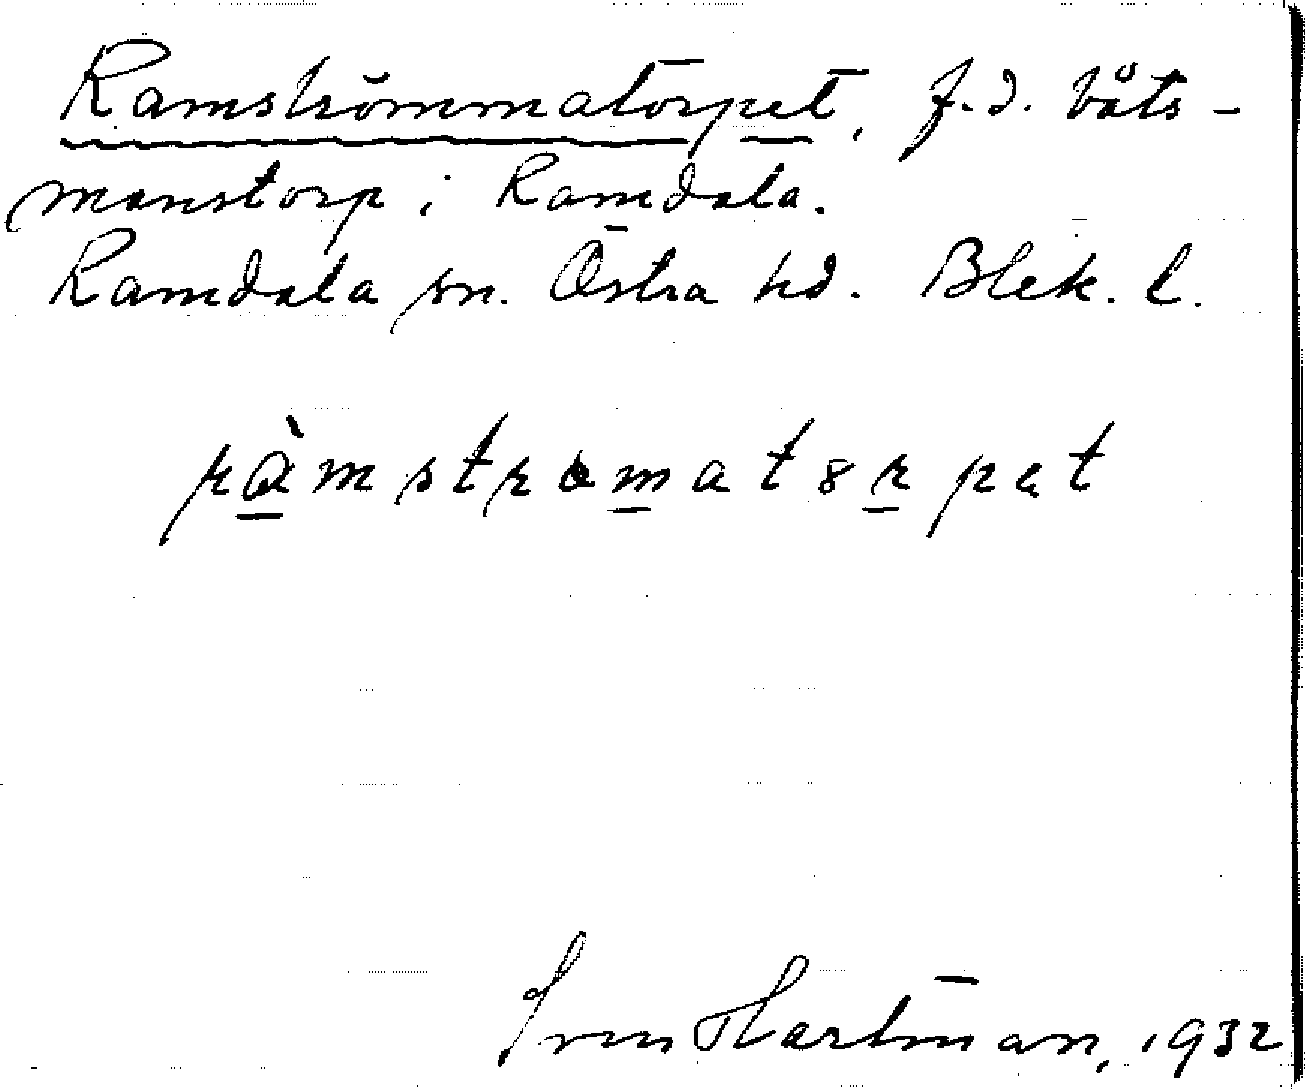 Ramströmmatorpet, f.d. båts-
manstorp i Ramdala.
Ramdala sn. Östra hd. Blek. l.
ràmstromatsrpet
Sven Hartman, 1932